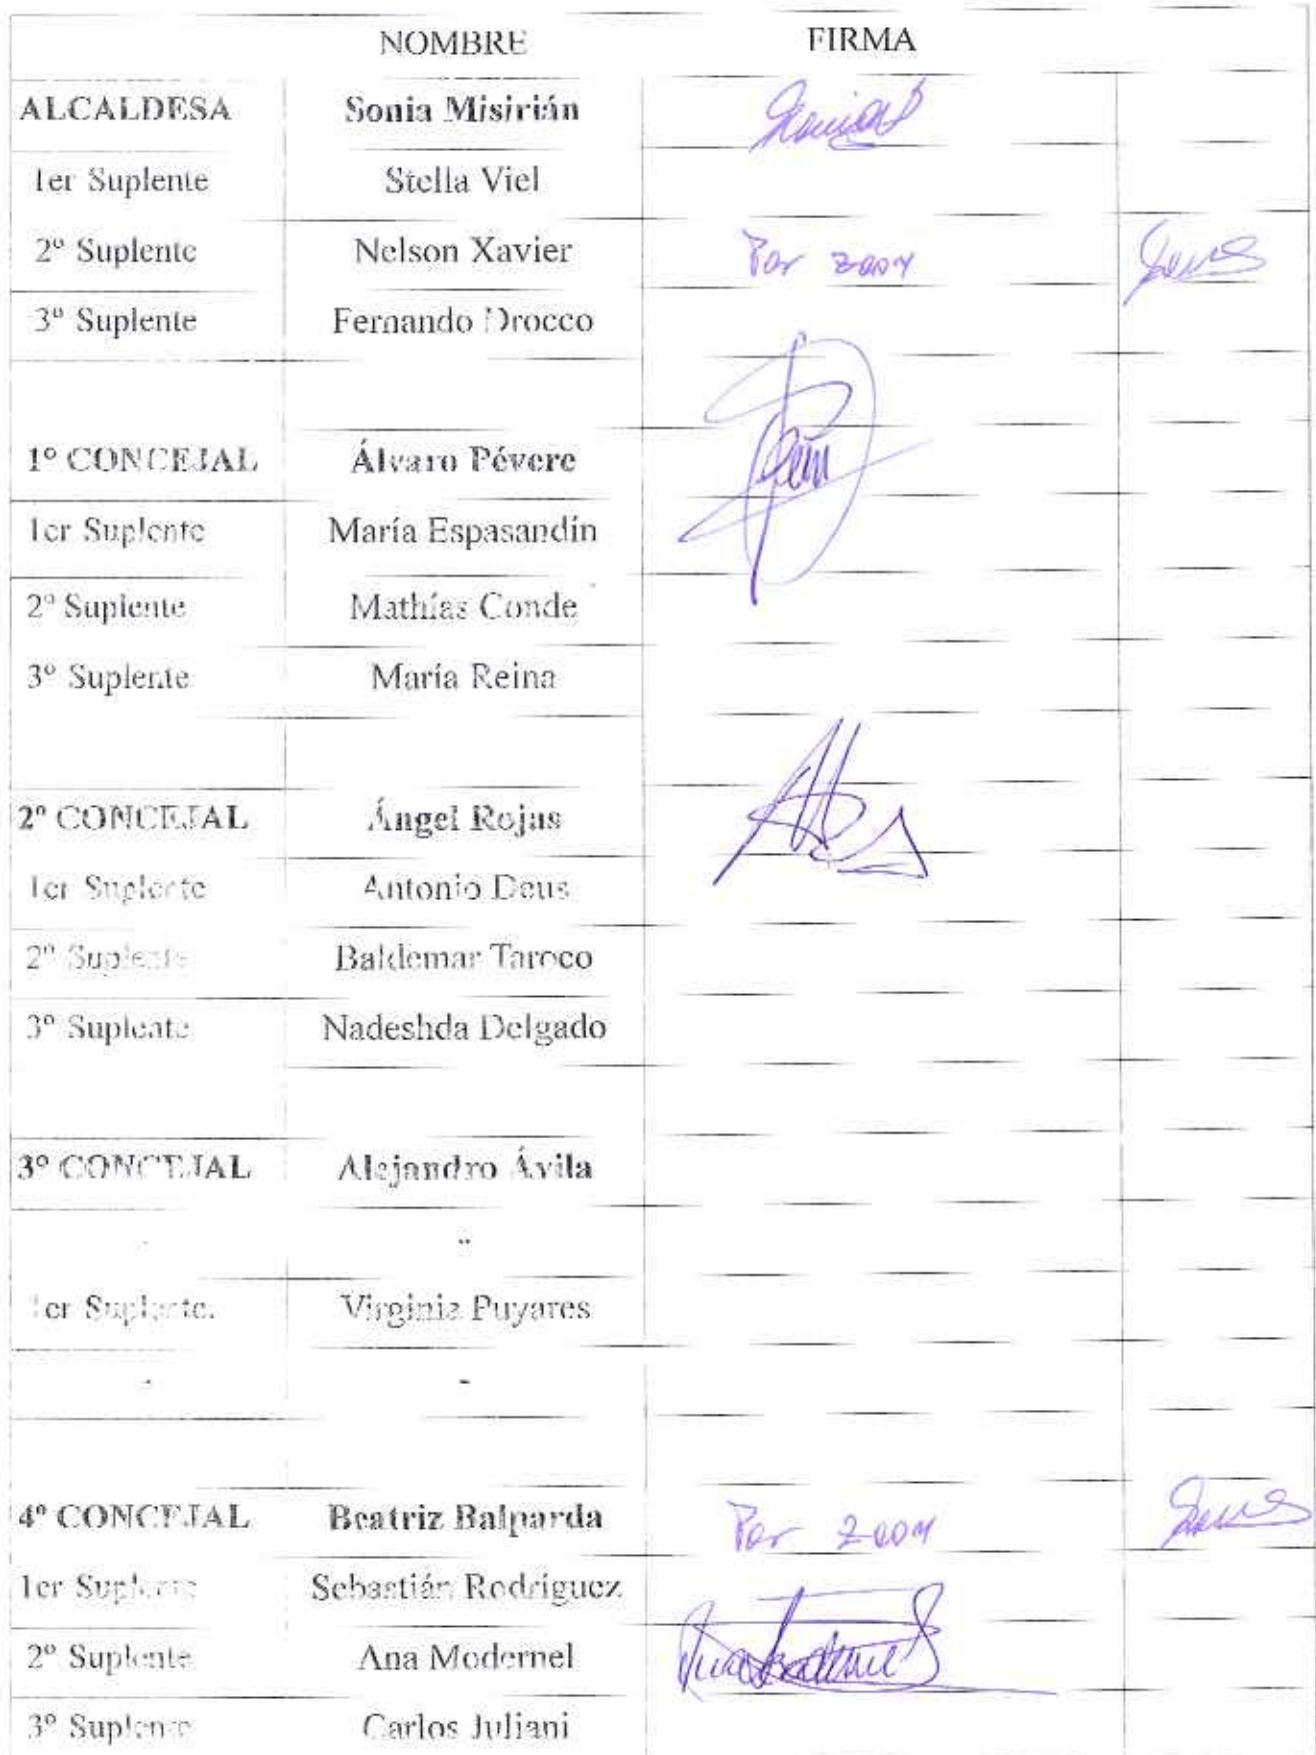 NOMBRE FIRMA
ALCALDESA Sonia Misirián
1er Suplente Stella Viel
2º Suplente Nelson Xavier Por zoom
3º Suplente Fernando Orocco
1º CONCEJAL Álvaro Pévere
1er Suplente María Espasandín
2º Suplente Mathías Conde
3º Suplente María Reina
2º CONCEJAL Ángel Rojas
1er Suplente Antonio Deus
2º Suplente Baldemar Taroco
3º Suplente Nadeshda Delgado
3º CONCEJAL Alejandro Ávila
1er Suplente. Virginia Puyares
4º CONCEJAL Beatriz Balparda Por zoom
1er Suplente Sebastián Rodríguez
2º Suplente Ana Modernel
3º Suplente Carlos Juliani